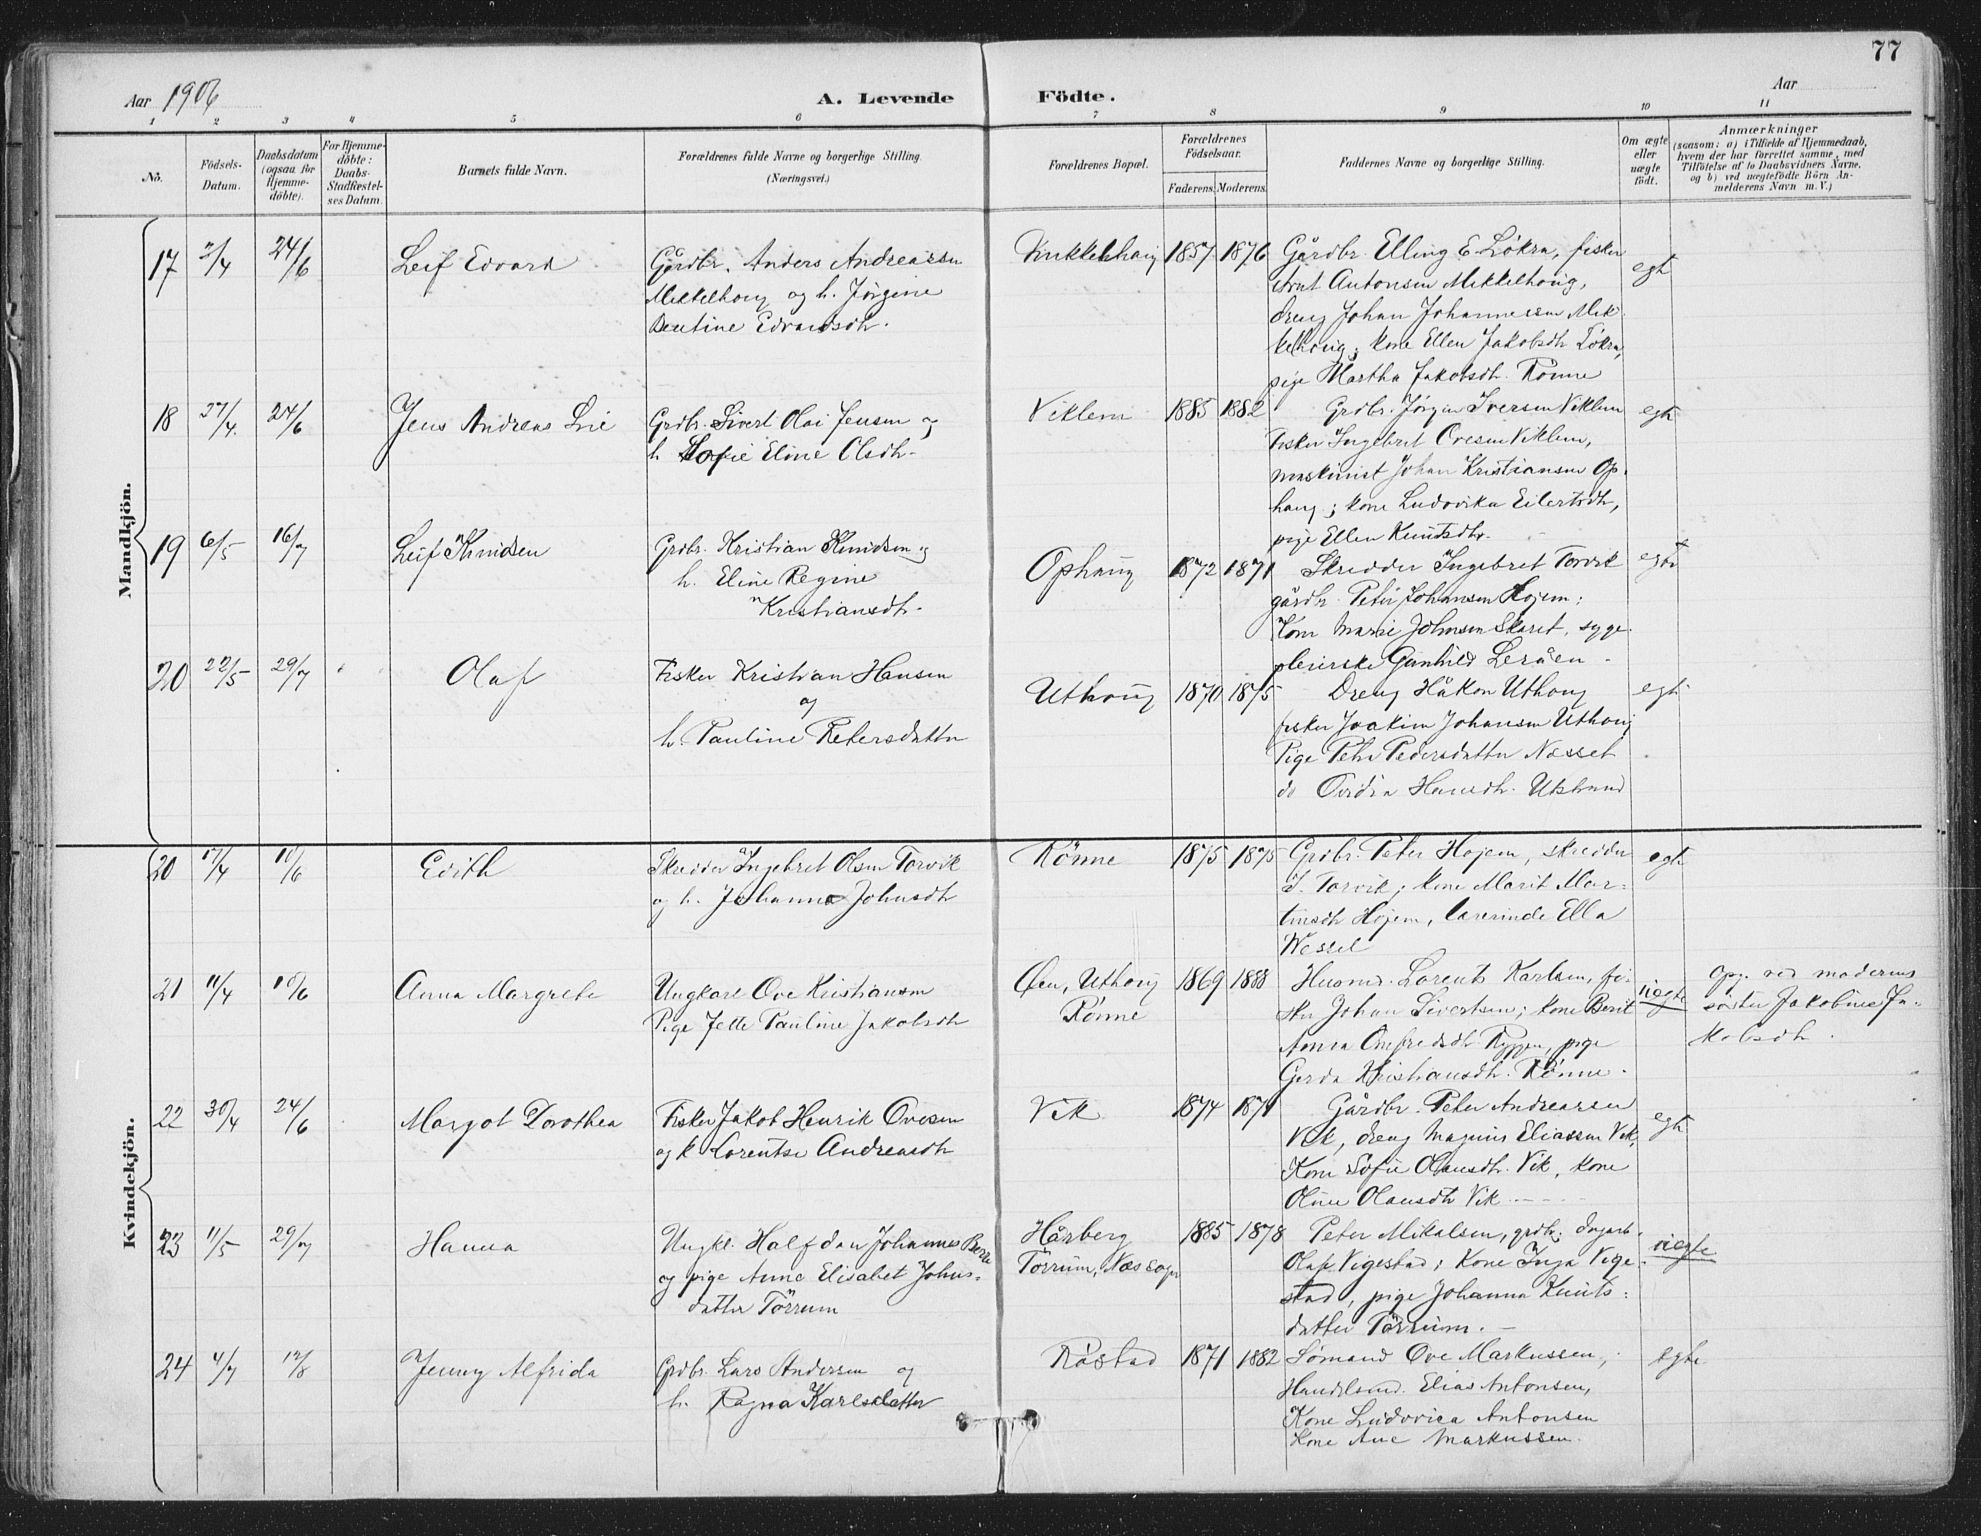 77
Aar 1906
A. Levende Födte.
Aar
1 2 3 4 5 6 7 8 9 10 11
No.
Födsels-Datum.
Daabsdatum (ogsaa for Hjemme-döbte).
For Hjemme-döbte: Daabs-Stadfæstel-ses Datum.
Barnets fulde Navn.
Forældrenes fulde Navne og borgerlige Stilling.
(Næringsvei.)
Forældrenes Bopæl.
Forældrenes Födselsaar.
Faderens. Moderens.
Faddernes Navne og borgerlige Stilling.
Om ægte eller uægte födt.
Anmærkninger
(saasom: a) i Tilfælde af Hjemmedaab, hvem der har forrettet samme, med Tilföielse af to Daabsvidners Navne, og b) ved uægtefödte Börn An-melderens Navn m. V.)
Mandkjön.
17 2/4 24/6 Leif Edvard
Gårdbr. Anders Andreassen
Mikkelhoug og h. Jørgine
Bentine Edvardsdtr.
Mikkelhoug 1857 1876
Gårdbr. Elling E. Løkra, fisker
Arnt Antonsen Mikkelhoug,
dreng Johan Johannessen Mik
kelhoug; kone Ellen Jakobsdtr Løkra,
pige Martha Jakobsdtr. Rønne
egte
18 27/4. 24/6 Jens Andreas Lie
Grdbr. Sivert Olai Jensen og
h. Sofie Eline Olsdtr.
Viklem 1885 1882
Grdbr. Jørgen Iversen Viklem
Fisker Ingebret Ovesen Viklem,
maskinist Johan Kristiansen Op-
haug; kone Ludovika Eilertsdtr,
pige Ellen Knutsdtr.
egte
19 6/5 16/7 Leif Knudsen
Grdbr. Kristian Knudsen og
h. Eline Regine
Kristiansdtr.
Ophaug 1872 1871
Skredder Ingebret Torvik
gårdbr. Peter Johansen Hojem;
Kone Marie Johnsen Skaret, syge
pleierske Gunhild Leråen.
egte
20 22/5 29/7 Olaf
Fisker Kristian Hansen
og
h. Pauline Petersdatter
Uthoug 1870 1875
Dreng Håkon Uthoug
fisker Joakim Johansen Uthoug
Pige Petra Pedersdatter Næsset
do Ovidia Hansdtr. Utstrand
egte
Kvindekjön.
20 17/4 10/6 Edith
Skredder Ingebret Olsen Torvik
og h. Johanna Johnsdtr
Rönne 1875 1875
Grdbr. Peter Hojem, skredder
I. Torvik; kone Marit Mar-
tinsdtr Hojem, lærerinde Ella
Wessel
egte
21 11/4 10/6 Anna Margrete
Ungkarl Ove Kristiansen
Pige Jette Pauline Jakobsdtr
Øen, Uthoug 1869 1888
Rønne
Husmd. Lorents Karlsen, fi-
sker Johan Sivertsen; kone Berit
Anna Onefredsdtr Ryggen, pige
Gerda Kristiansdtr. Rønne.
uegte
Opg. ved moderens
søster Jakobine Ja-
kobsdtr.
22 30/4 24/6 Margot Dorothea
Fisker Jakob Henrik Ovesen
og h. Lorentse Andreasdtr
Vik 1874 1871
Gårdbr. Peter Andreassen
Vik, dreng Magnus Eliassen Vik,
Kone Sofie Olausdtr. Vik, kone
Oline Olausdtr Vik
egte
23 11/5 29/7 Hanna
Ungkl. Halfdan Johannes Berre
og pige Anne Elisabet Johns-
datter Törrum
Hårberg 1885 1878
Törrum, Næs sogn
Peter Mikalsen, grdbr; dagarb.
Olaf Vigestad; Kone Inga Vige-
stad, pige Johanna Knuts-
datter Tørrum.
uegte
24 4/7 12/8 Jenny Alfrida
Grdbr. Lars Andersen og
h. Ragna Karlsdatter
Råstad 1871 1882
Sømand Ove Markussen,
Handelsmd. Elias Antonsen,
Kone Ludovica Antonsen
Kone Ane Markussen.
egte